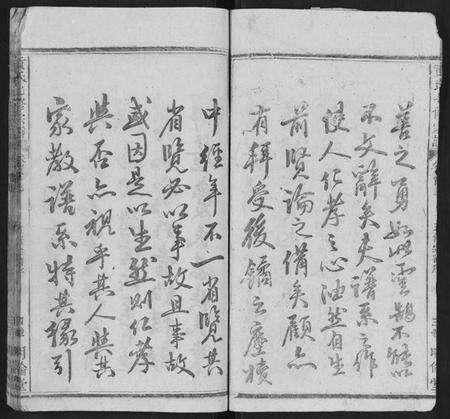 善之勇如此雲鵠不能
不文辭矣夫譜系之作
使人仁孝之心油然自生
前賢論之備矣顧亦
有耕受後鐍之塵櫝
中經年不一省覽其
省覽必以事故且事故
或因是以生然則仁孝
與否亦視乎其人與其
家教譜系特其緣引